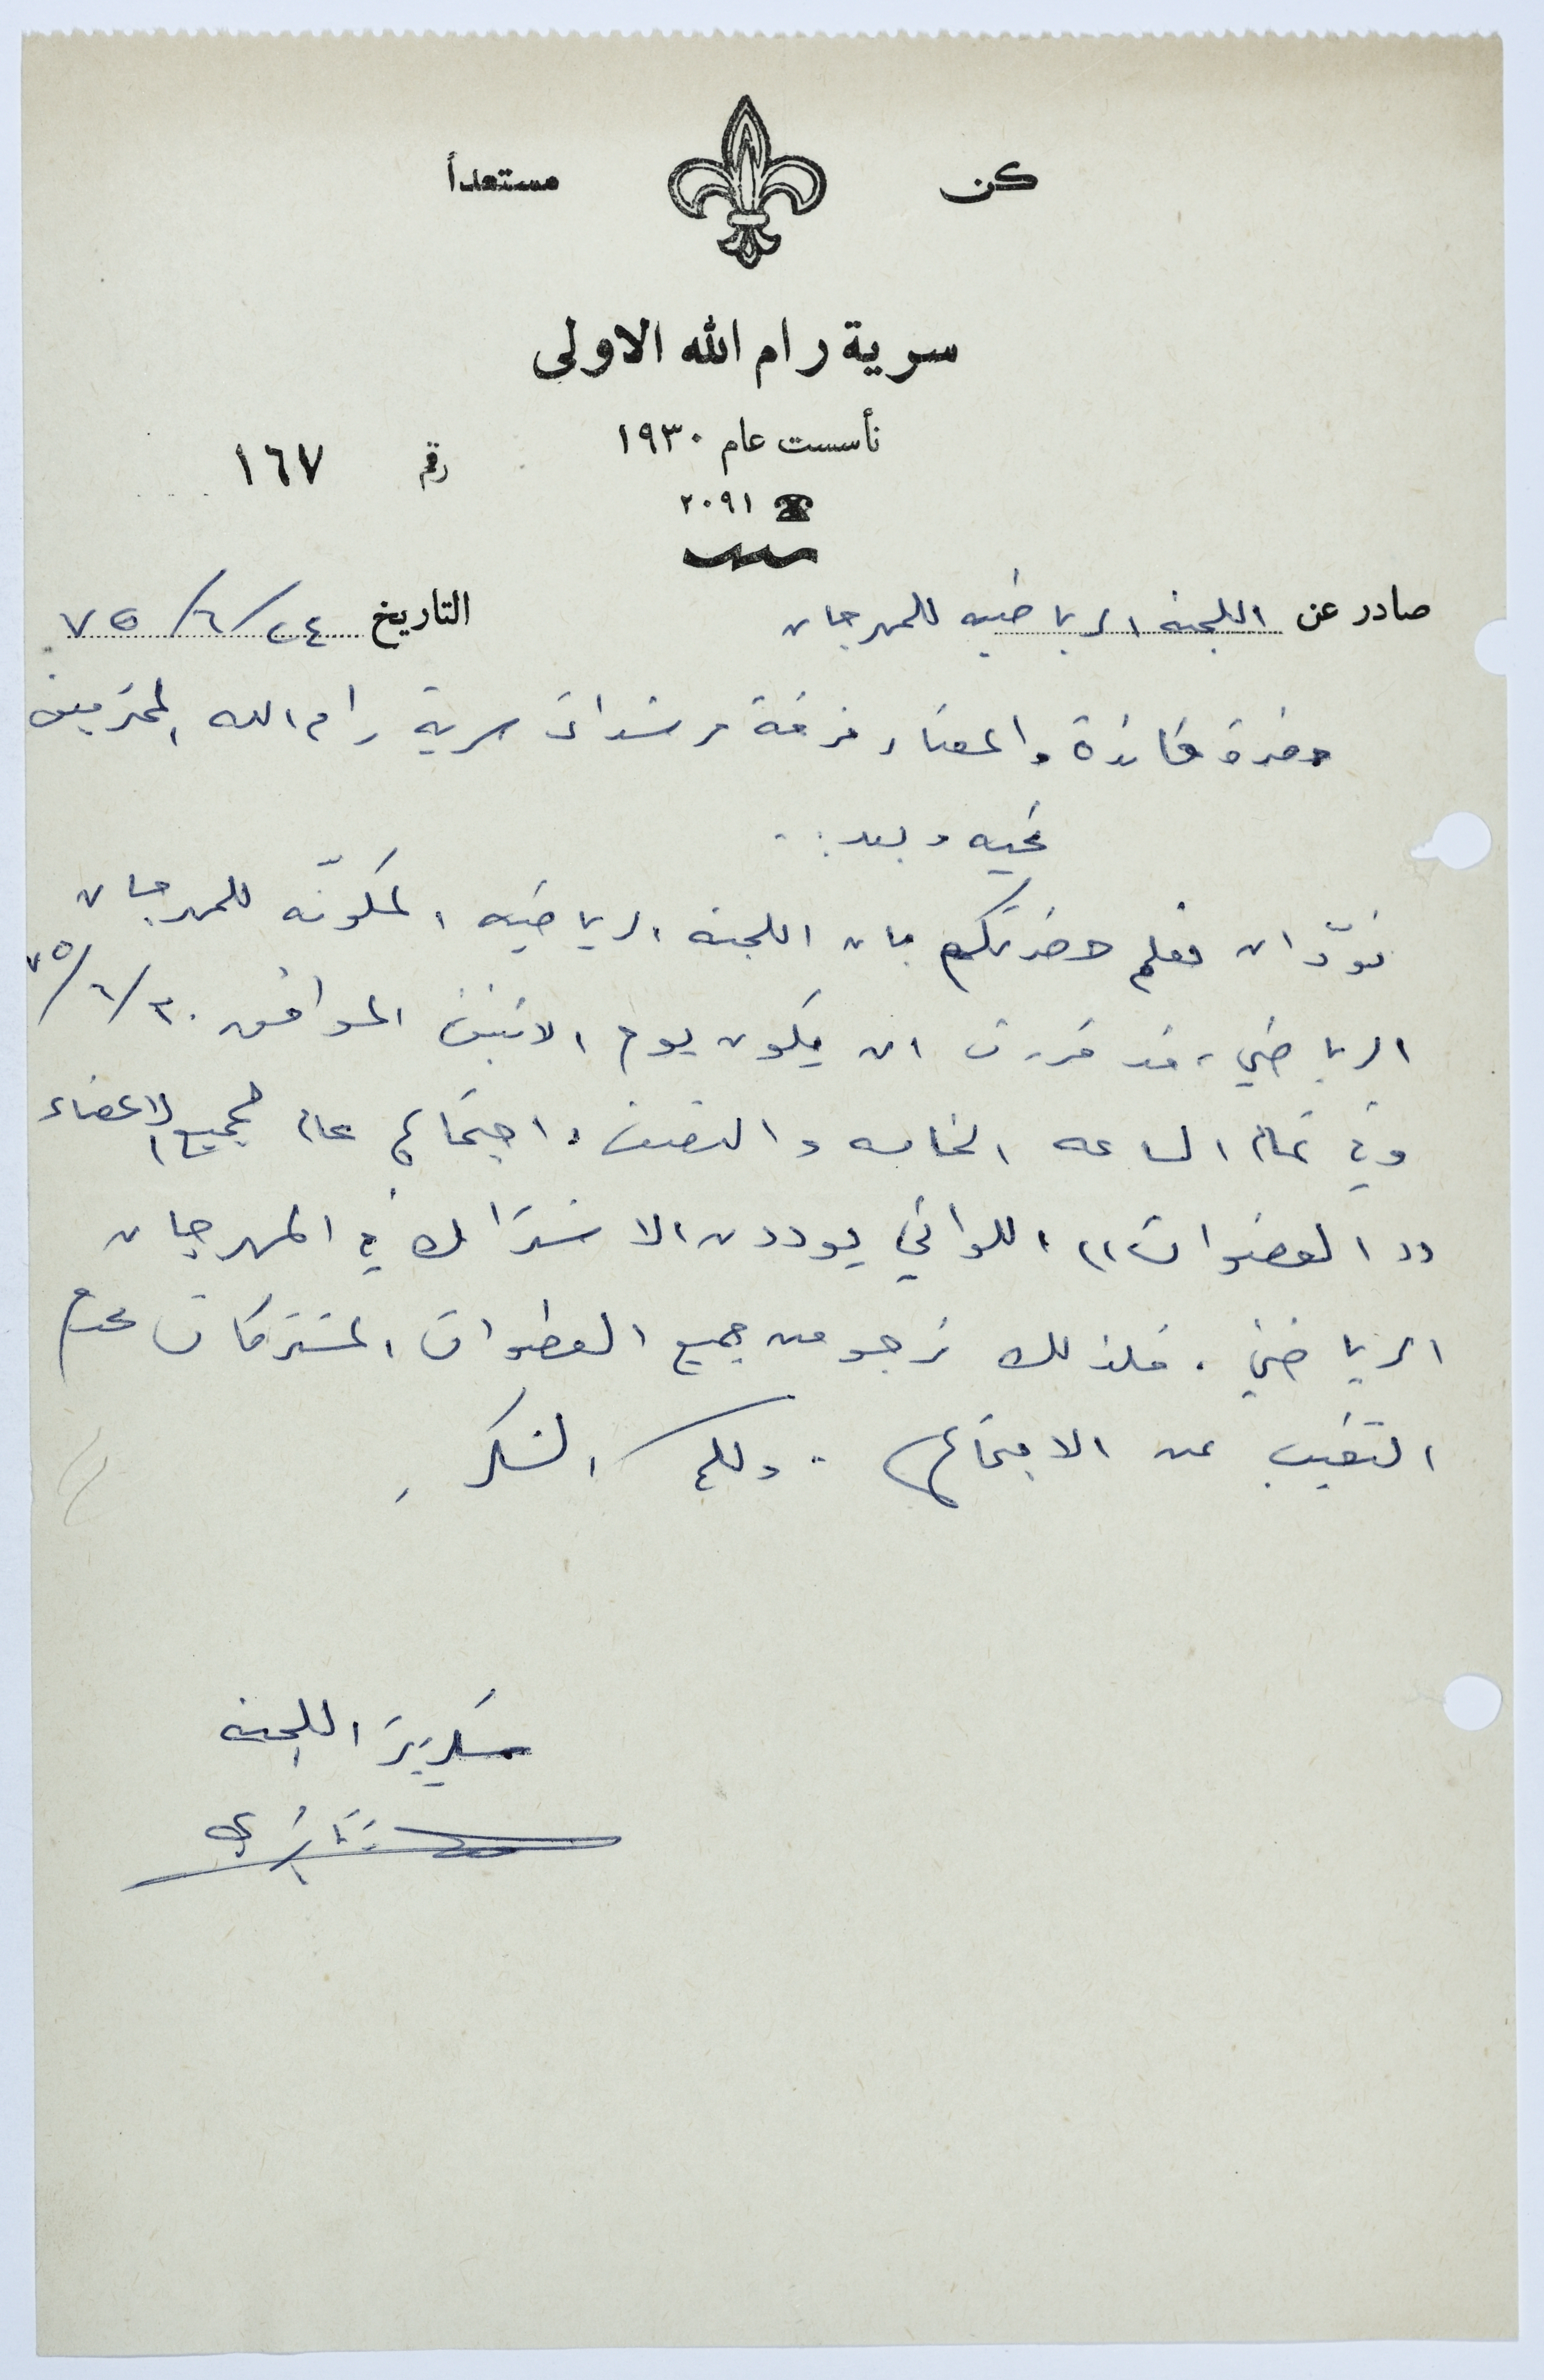 كن مستعداً
سرية رام الله الاولى
تأسست عام ١٩٣٠
رقم ١٦٧
٢٠٩١
صادر عن اللجنه الرياضيه للمهرجان
التاريخ ٢٤/٦/٧٥
حضرة قائدة واعضاء فرقة مرشدات سرية رام الله المحترمين
تحيه وبعد..
نودّ ان نعلم حضرتكم بان اللجنه الرياضيه المكوّنه للمهرجان
الرياضي، قد قررت ان يكون يوم الاثنين الموافق ٣٠/٦/٧٥
وفي تمام الساعه الخامسه والنصف، اجتماع عام لجميع الاعضاء
"العضوات" اللواتي يوددن الاشتراك في المهرجان
الرياضي. فلذلك نرجو من جميع العضوات المشتركات عدم
التغيب عن الاجتماع. ولكم الشكر
سكرتير اللجنه